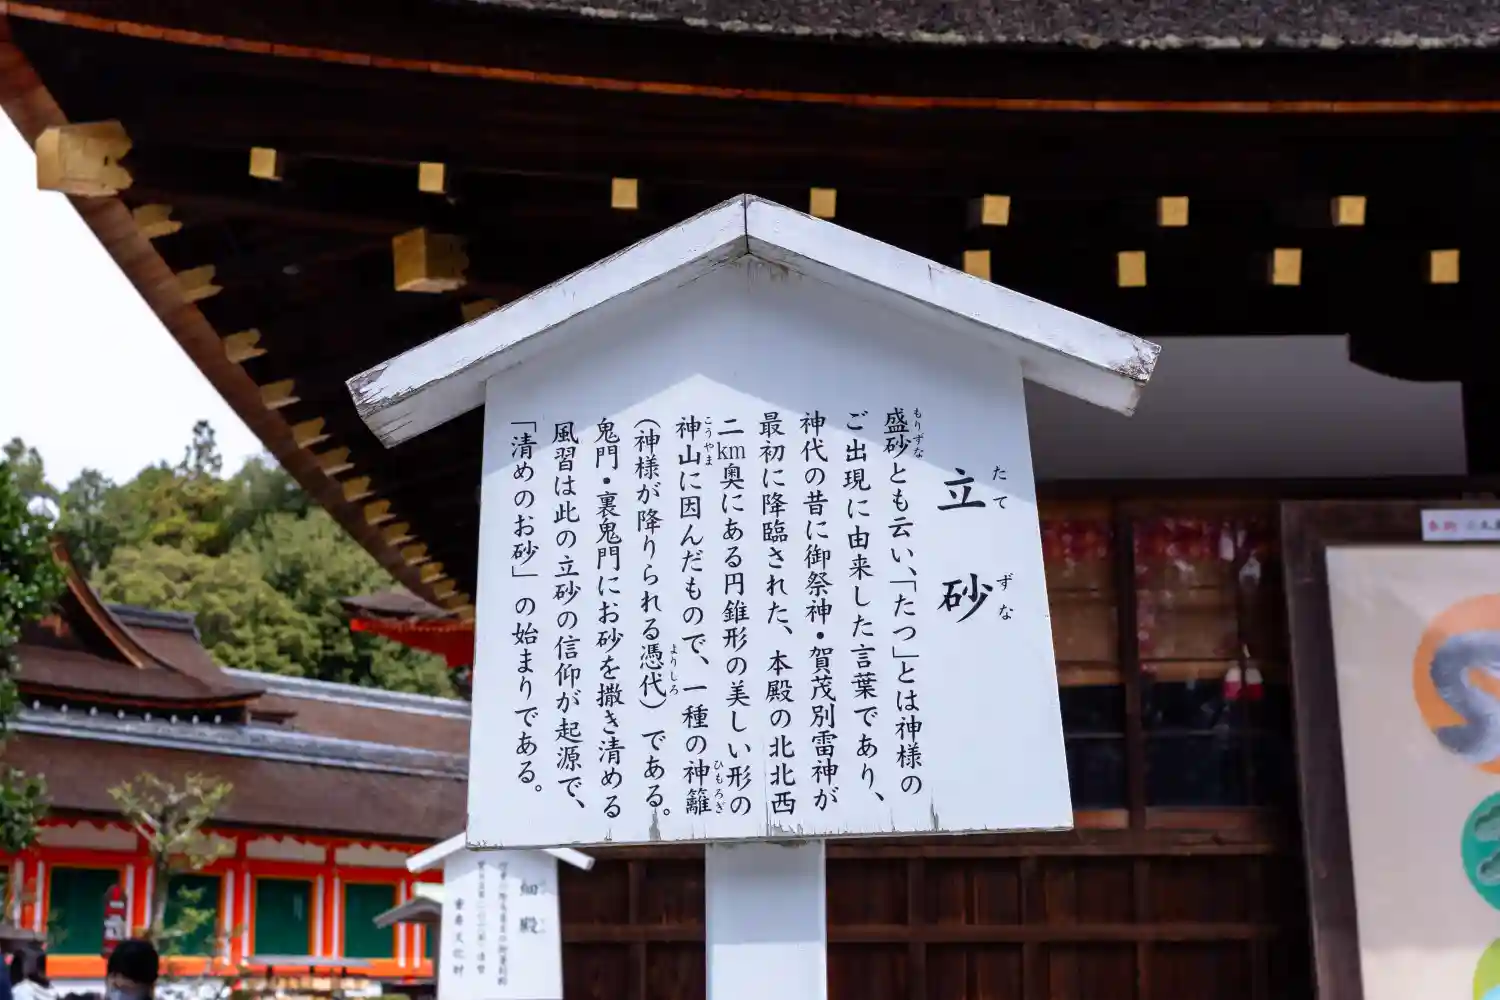 立砂
たてずな
盛砂とも云い、「たつ」とは神様の
もりずな
ご出現に由来した言葉であり、
神代の昔に御祭神・賀茂別雷神が
最初に降臨された、本殿の北北西
二km奥にある円錐形の美しい形の
神山に因んだもので、一種の神籬
こうやま
ひもろぎ
（神様が降りられる憑代）である。
よりしろ
鬼門・裏鬼門にお砂を撒き清める
風習は此の立砂の信仰が起源で、
「清めのお砂」の始まりである。
細殿
重要文化財